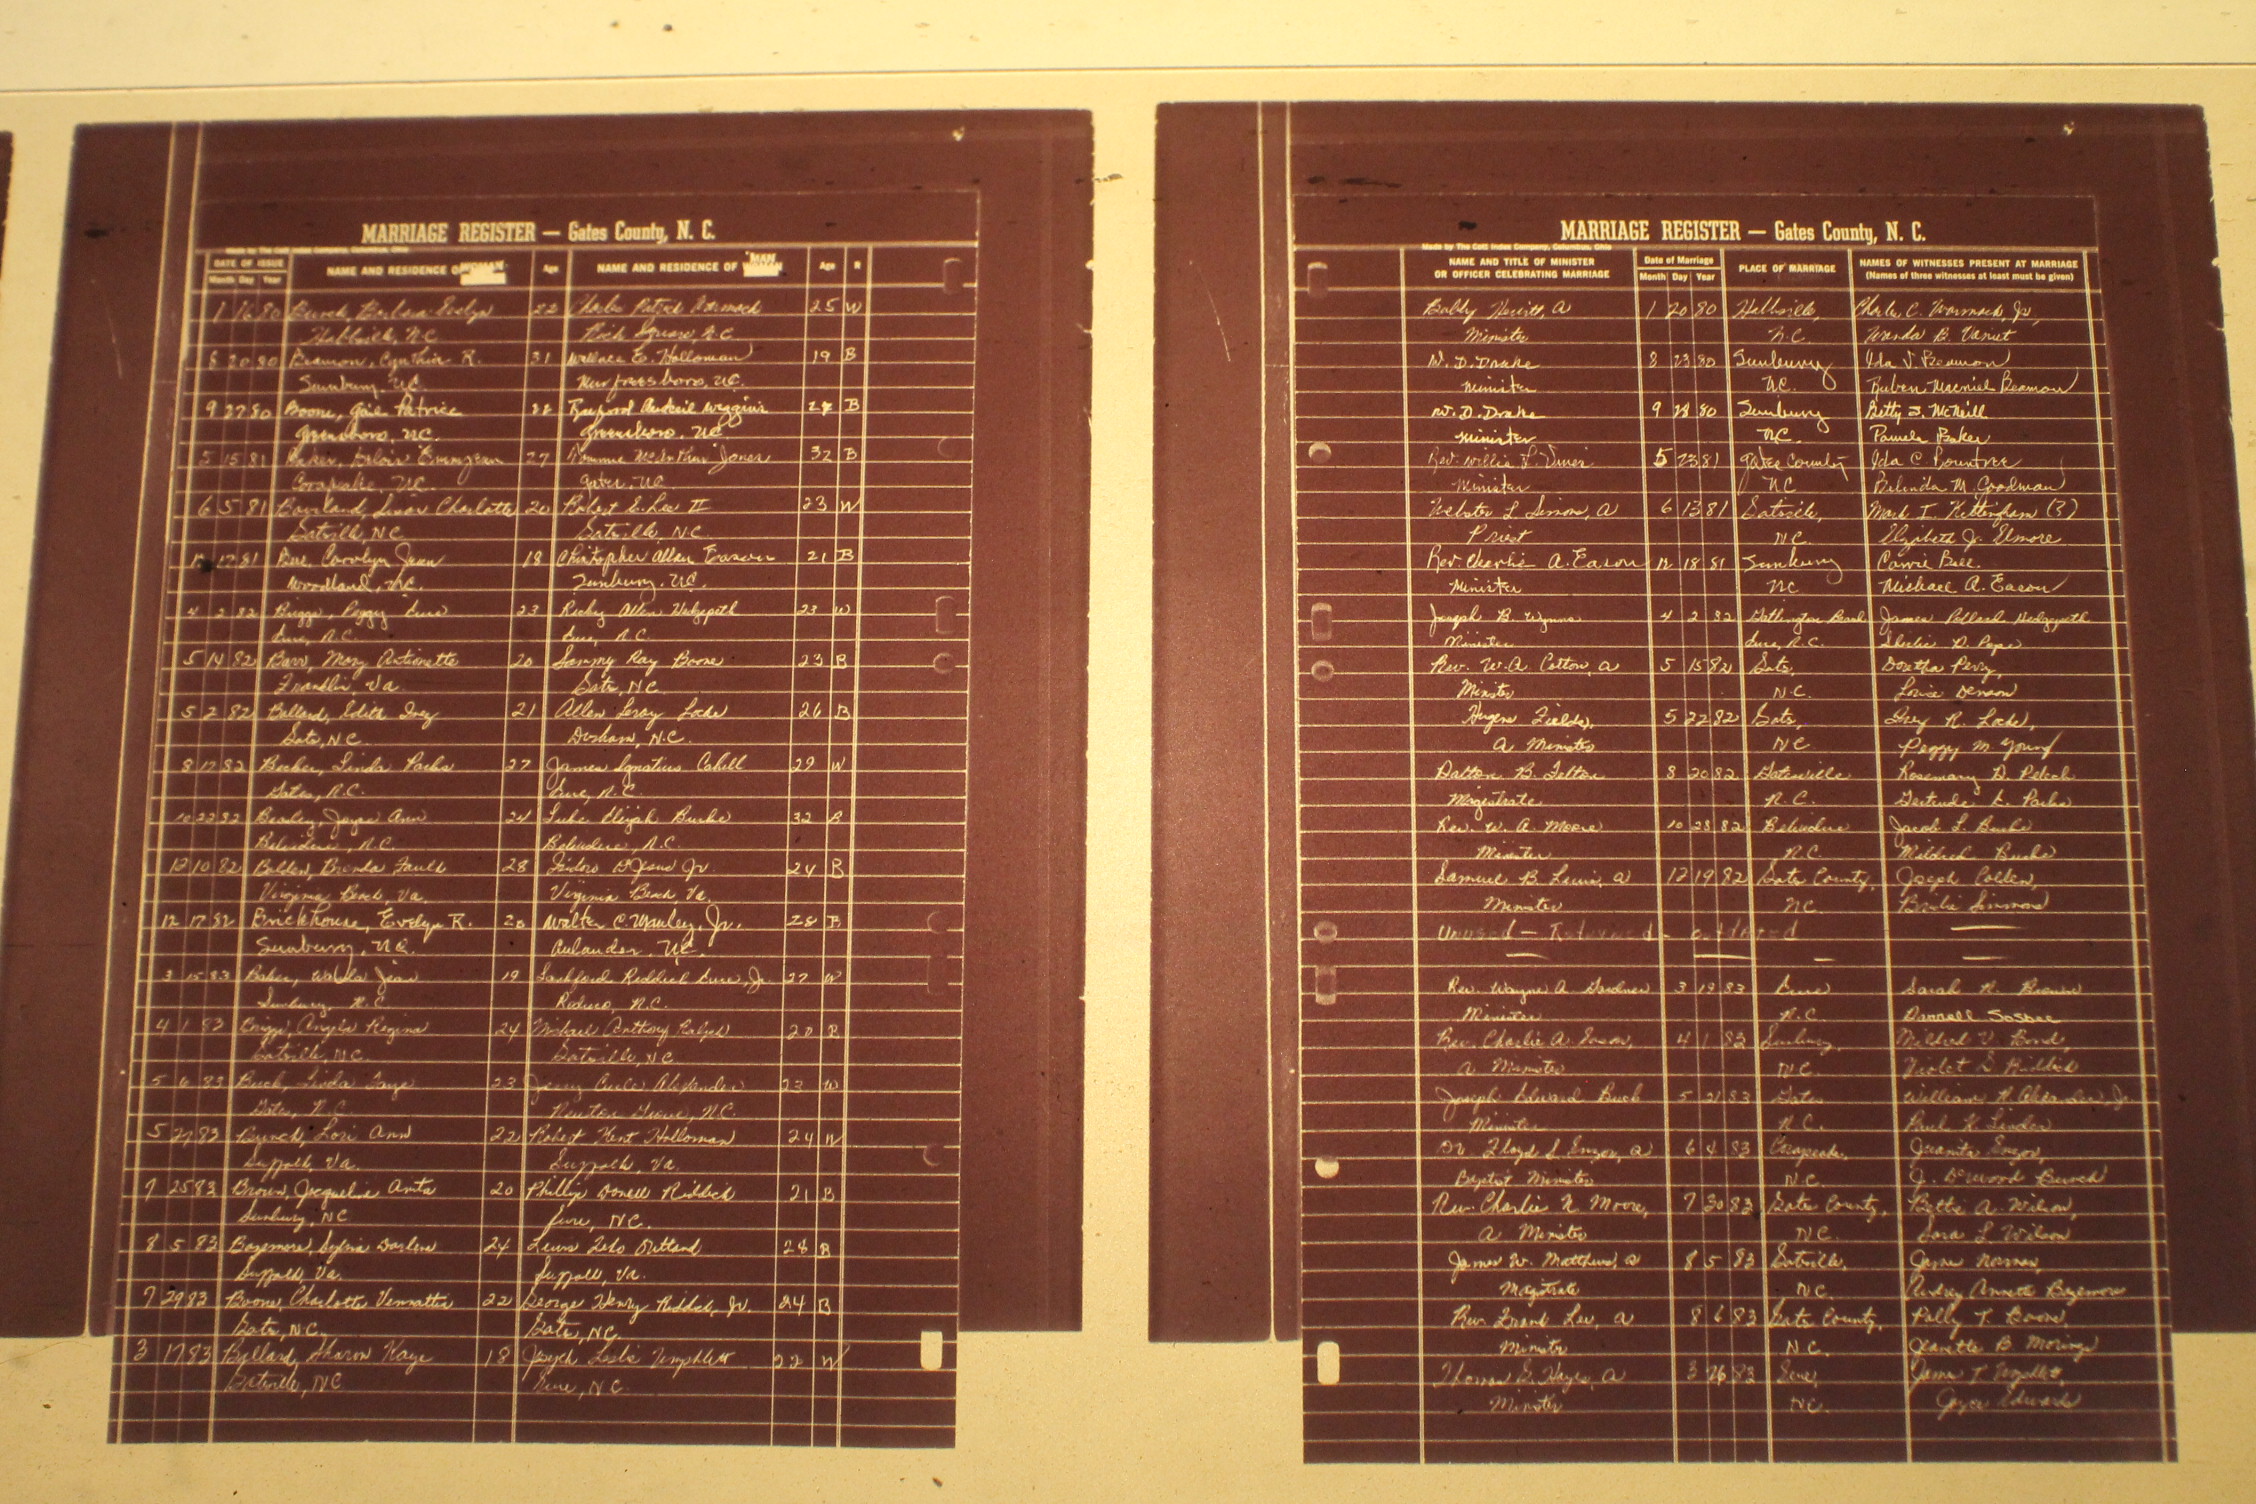 MARRIAGE REGISTER — Gates County, N. C.
Made by The Cott Index Company, Columbus, Ohio
DATE OF ISSUE
Month Day Year
NAME AND RESIDENCE OF WOMAN
Age
NAME AND RESIDENCE OF MAN
Age
R
1 16 80 Bunch, Barbara Evelyn 22 Charles Patrick Wormack 25 W
Hobbsville, N.C. Rich Square N.C.
8 20 80 Beamon, Cynthia R. 31 Wallace E. Holloman 19 B
Sunbury, N.C. Murfreesboro, N.C.
9 27 80 Boone, Gail Patrice Wiggins B
Greensboro, N.C. Greensboro, N.C.
5 15 81 Baker, 27 McArthur Jones 32 B
Corapeake, N.C. Gates, N.C.
6 5 81 Charlotte 20 Robert E. Lee II 23 W
Gatesville, NC Gatesville, NC
12 17 81 Carolyn Jean 18 Christopher Allen Eason 21 B
Woodland, N.C. Sunbury, N.C.
4 2 82 Briggs, Peggy 23 Ricky Allen Hedgepeth 23 W
Eure, N.C. Eure, N.C.
5 14 82 Barr, Mary Antionette 20 Sammy Ray Boone 23 B
Franklin, Va. Gates, N.C.
5 2 82 Ballard, Edith Inez 21 Allen Leroy Locke 26 B
Gates, N.C. Durham, N.C.
8 17 82 Becker, Linda Parks 27 James Ignatius Cahill 29 W
Gates, N.C. Eure, N.C.
10 22 82 Joyce Ann 24 Luke Elijah Burke 32 B
Belvidere, N.C. Belvidere, N.C.
12 10 82 Bolden, Brenda Faulk 28 Isidoro Jr. 24 B
Virginia Beach, Va. Virginia Beach, Va.
12 17 82 Brickhouse, Evelyn R. 20 Walter C. Manley, Jr. 28 B
Sunbury, N.C. Aulander, N.C.
3 15 83 Baker, Jean 19 Lashford Riddick Eure, Jr. 27 W
Sunbury, N.C. Roduco, N.C.
4 1 83 Briggs, Angela Regina 24 Michael Anthony Ralph 20 B
Gatesville, N.C. Gatesville, N.C.
5 6 83 Buck, Linda Faye 23 Jerry Alexander 23 W
Gates, N.C. Newton Grove, N.C.
5 27 83 Bunch, Lori Ann 22 Robert Kent Holloman 24 W
Suffolk, Va. Suffolk, Va.
7 25 83 Brown, Jacqueline Anita 20 Phillip Donell Riddick 21 B
Sunbury, NC Eure, N.C.
8 5 83 Bazemore, Sylvia Darlene 24 Outland 28 B
Suffolk, Va. Suffolk, Va.
7 29 83 Boone, Charlotte 22 George Henry Riddick, Jr. 24 B
Gates, N.C. Gates, N.C.
3 17 83 Ballard, Sharon Kaye 18 Joseph Leslie 22 W
Gatesville, NC Eure, N.C.
MARRIAGE REGISTER — Gates County, N. C.
Made by The Cott Index Company, Columbus, Ohio
NAME AND TITLE OF MINISTER OR OFFICER CELEBRATING MARRIAGE
Date of Marriage
Month Day Year
PLACE OF MARRIAGE
NAMES OF WITNESSES PRESENT AT MARRIAGE
(Names of three witnesses at least must be given)
Bobby Hewitt, a 1 20 80 Hobbsville, Charles C. Wormack, Jr.,
Minister N.C. Wanda B.
W. D. Drake 8 23 80 Sunbury Ida V. Beamon
Minister N.C. Ruben Beamon
W. D. Drake 9 28 80 Sunbury Betty S. McNeill
Minister N.C. Pamela Baker
Rev. Willie 5 23 81 Gates County Ida C. Rountree
Minister NC Belinda M. Goodman
Webster L. Simons, a 6 13 81 Gatesville, Mark T. (?)
Priest N.C. Elizabeth J. Elmore
Rev. Charlie A. Eason 12 18 81 Sunbury Carrie
Minister NC Michael A. Eason
Joseph B. Wynns 4 2 82 Beach James Pollard Hedgepeth
Minister Eure, N.C. D. Pope
Rev. W. A. Cotton, a 5 15 82 Gates, Doretha Perry,
Minister N.C. Louise Denson
Fields, 5 22 82 Gates, R. Locke,
a Minister NC Peggy M. Young
Dalton B. Felton 8 20 82 Gatesville Rosemary D.
Magistrate N.C. Gertrude L. Parks
Rev. W. A. Moore 10 23 82 Belvidere Jacob L. Burke
Minister N.C. Mildred Burke
Samuel B. Lewis, a 12 19 82 Gates County, Joseph Colden,
Minister NC. Simmons
Unused — Returned — outdated —
Rev. Wayne A. Gardner 3 19 83 Eure Sarah R. Browne
Minister N.C. Donnell Sosbee
Rev. Charlie A. Eason, 4 1 83 Sunbury, Mildred V. Bond,
a Minister N.C. Violet S. Riddick
Joseph Edward Buck 5 21 83 Gates William H. Alexander, Jr.
Minister N.C. Paul K. Linder
Dr. Lloyd S. a 6 4 83 Corapeake, Juanita
Baptist Minister N.C. J. Derwood Bunch
Rev. Charlie N. Moore, 7 30 83 Gates County, Bettie A. Wilson,
a Minister N.C. Sara L. Wilson
James W. Matthews, a 8 5 83 Gatesville, Norman,
Magistrate N.C. Audrey Annette Bazemore
Rev. Frank Lee, a 8 6 83 Gates County, Polly T. Boone,
Minister N.C. Jeanette B.
Thomas G. Hayes, a 3 26 83 Eure, James T.
Minister N.C. Joyce Edwards